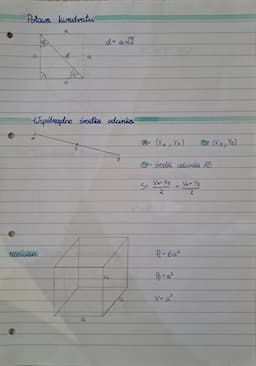 Połowa kwadratu
a
45°
d = a√2
a
d
a
45°
a
Współrzędne środka odcinka
A
S
B
A = (xA, yA) B = (xB, yB)
S = środek odcinka AB
S = xA+xB/2 , yA+yB/2
sześcian
P = 6a²
Pp = a²
V = a³
a
a
a